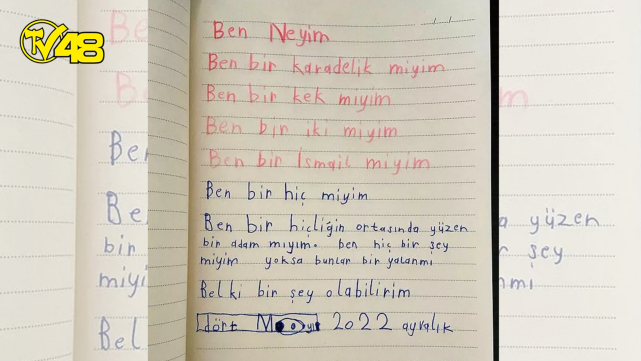 TV48
Ben Neyim
Ben bir karadelik miyim
Ben bir kek miyim
Ben bir iki miyim
Ben bir İsmail miyim
Ben bir hiç miyim
Ben bir hiçliğin ortasında yüzen
bir adam mıyım. ben hiç bir şey
miyim yoksa bunlar bir yalanmı
Belki bir şey olabilirim
dört 2022 ayralık